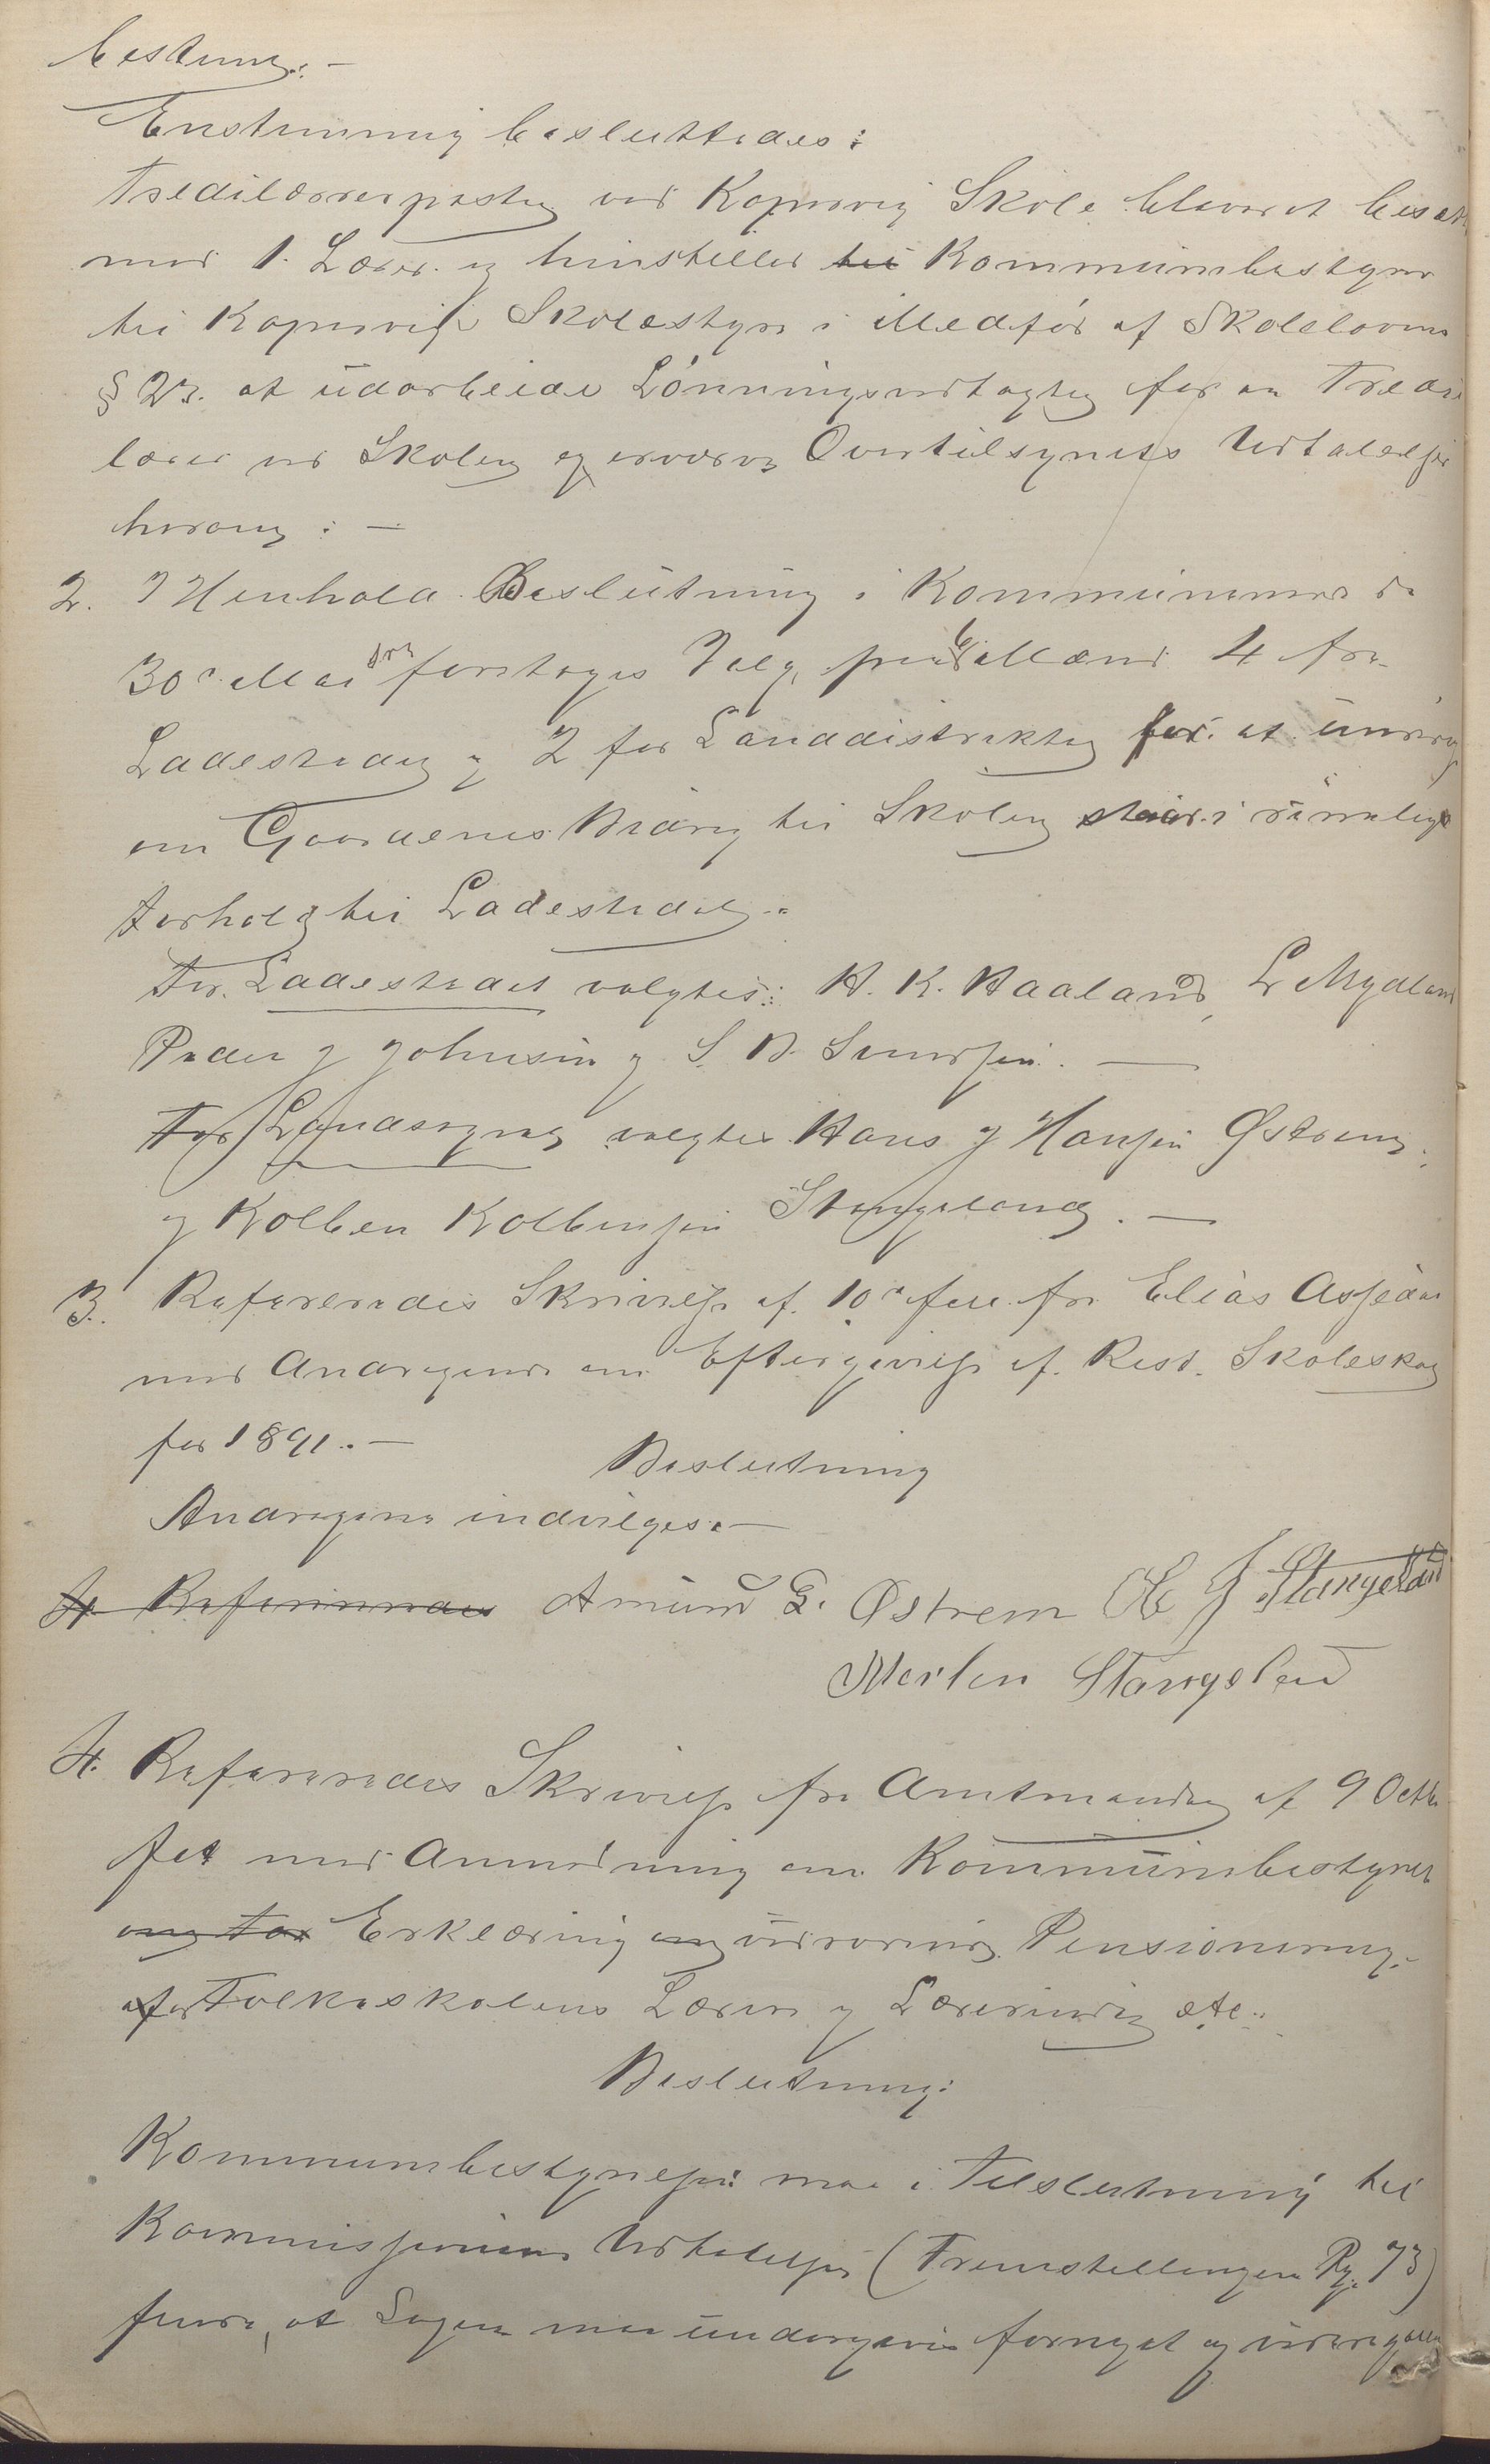 bestemt.—
Enstemmig besluttedes:
Tredilærerposten ved Kopervig Skole blever at besætte
med 1. Lærer og henstiller til Kommunebestyrer
til Kopervigs Skolestyre i Medfør af Skoleloven
§ 23. at udarbeide Lønningsvedtægter for en Tredie
lærer ved Skolen og erverve Overtilsynets Udtalelse
herom: —
2. I Henhold Beslutning i Kommunemøde
30te Mai foretoges Valg paa 6 Mænd 4 fra
Ladestedet og 2 for Landdistriktet for at
om Gaardenes Bidrag til Skolen staar i rimeligt
Forhold til Ladestedet.
For Ladestedet valgtes: H. K. Haaland, L Mydland
Peder J Johnsen og S. B. Simonsen. —
For Landsognet valgtes Hans J Hansen Østrem
og Kolben Kolbensen Stangeland. —
3. Refereredes Skrivelse af 10de fra Elias
med Andragende om Eftergivelse af Rest. Skoleskat
for 1891. —
Beslutning
Andragende indvilges. —
4. Refereredes Amund G. Østrem O J Stangeland
Morten Stangeland
4. Refereredes Skrivelse fra Amtmanden af 9 Octbr
med Anmodning om Kommunebestyrels
om For Erklæring om vedrørende Pensionering
af for Folkeskolens Lærere og Lærerinder etc.
Beslutning:
Kommunebestyrelsen maa i Tilslutning til
Kommissionens Udtalelse (Fremstillingen Pg. 73)
finde, at Sagen maa undergives fornyet og